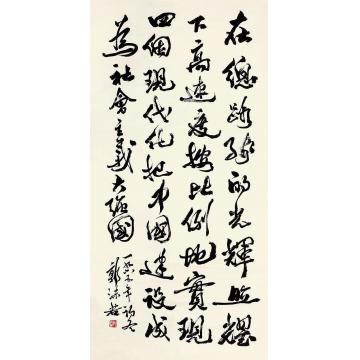 在總路綫的光輝照耀
下高速度按比例地實現
四個現代化把中國建設成
為社會主義大強國
郭沫若